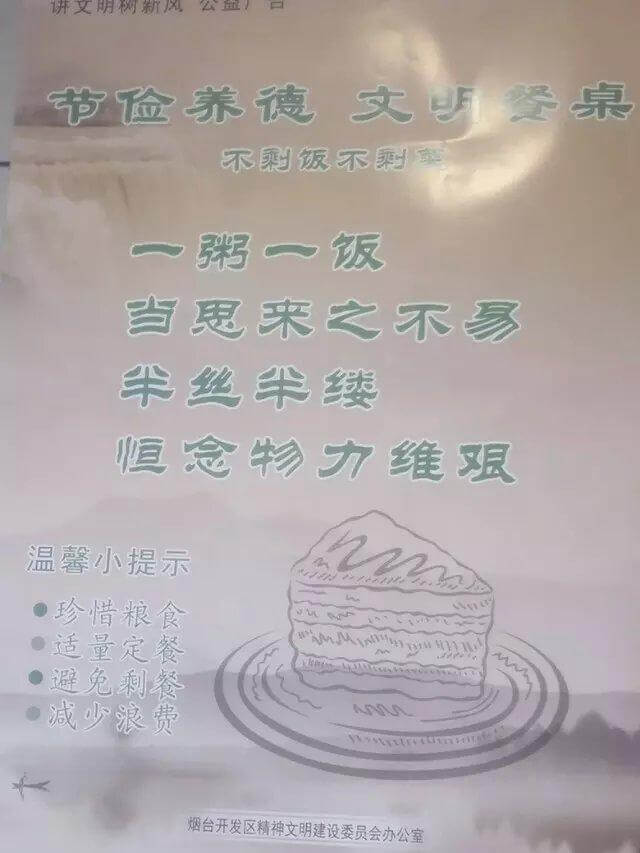 讲文明树新风 公益广告
节俭养德 文明餐桌
不剩饭不剩菜
一粥一饭
当思来之不易
半丝半缕
恒念物力维艰
温馨小提示
珍惜粮食
适量定餐
避免剩餐
减少浪费
烟台开发区精神文明建设委员会办公室